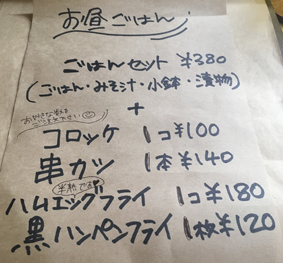 お昼ごはん
ごはんセット ¥380
(ごはん・みそ汁・小鉢・漬物)
+
コロッケ 1コ¥100
串カツ 1本¥140
半熟です
ハムエッグフライ 1コ¥180
黒ハンペンフライ 1枚¥120